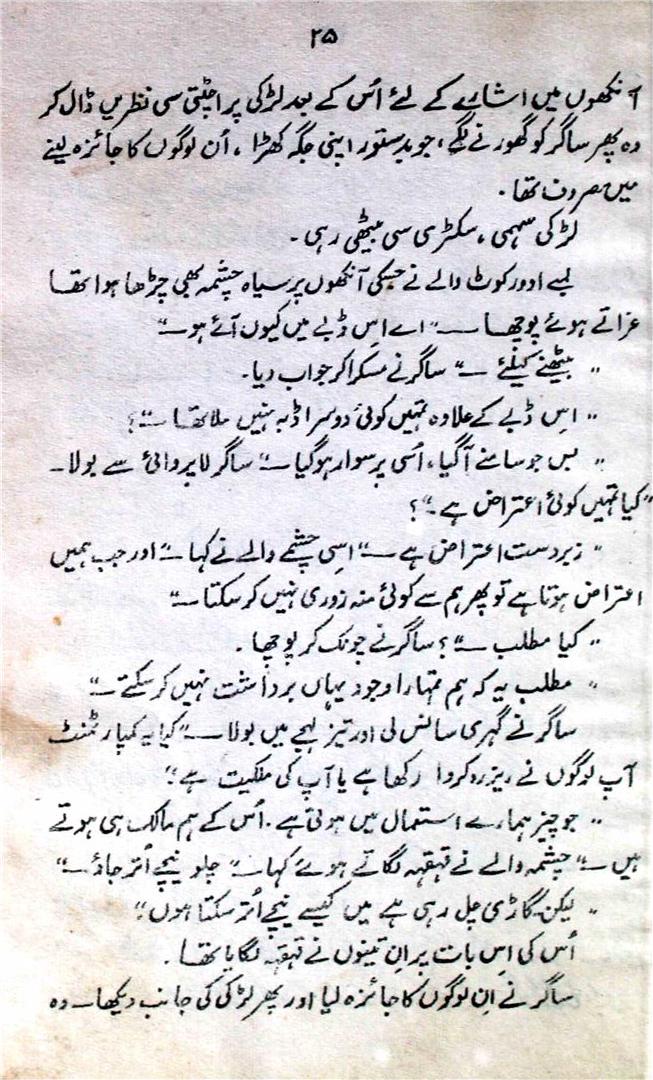 ۲۵
آنکھوں میں اشارے کے لئے اُس کے بعد لڑکی پر اچٹتی سی نظریں ڈال کر
وہ پھر ساگر کو گھورنے لگے، جو بدستور اپنی جگہ کھڑا، اُن لوگوں کا جائزہ لینے
میں مصروف تھا.
لڑکی سہمی، سکڑی سی بیٹھی رہی۔
لمبے اوور کوٹ والے نے جسکی آنکھوں پر سیاہ چشمہ بھی چڑھا ہوا تھا
غراتے ہوئے پوچھا — "اے اس ڈبے میں کیوں آئے ہو—"
"بیٹھنے کیلئے —" ساگر نے مسکرا کر جواب دیا.
"اِس ڈبے کے علاوہ تمہیں کوئی دوسرا ڈبہ نہیں ملا تھا —"؟
"بس جو سامنے آ گیا، اُسی پر سوار ہو گیا —" ساگر لاپروائی سے بولا۔
"کیا تمہیں کوئی اعتراض ہے۔"؟
"زبردست اعتراض ہے —" اسی چشمے والے نے کہا —" اور جب ہمیں
اعتراض ہوتا ہے تو پھر ہم سے کوئی منہ زوری نہیں کر سکتا —"
"کیا مطلب —"؟ ساگر نے چونک کر پوچھا.
"مطلب یہ کہ ہم تمہارا وجود یہاں برداشت نہیں کر سکتے —"
ساگر نے گہری سانس لی اور تیز لہجے میں بولا —"کیا یہ کمپارٹمنٹ
آپ لوگوں نے ریزرو کروا رکھا ہے یا آپ کی ملکیت ہے؟"
"جو چیز ہمارے استعمال میں ہوتی ہے. اُس کے ہم مالک ہی ہوتے
ہیں —" چشمہ والے نے قہقہہ لگاتے ہوئے کہا —" چلو نیچے اُتر جاؤ —"
"لیکن گاڑی چل رہی ہے میں کیسے نیچے اُتر سکتا ہوں"
اُس کی اِس بات پر اِن تینوں نے قہقہہ لگایا تھا.
ساگر نے اِن لوگوں کا جائزہ لیا اور پھر لڑکی کی جانب دیکھا — وہ